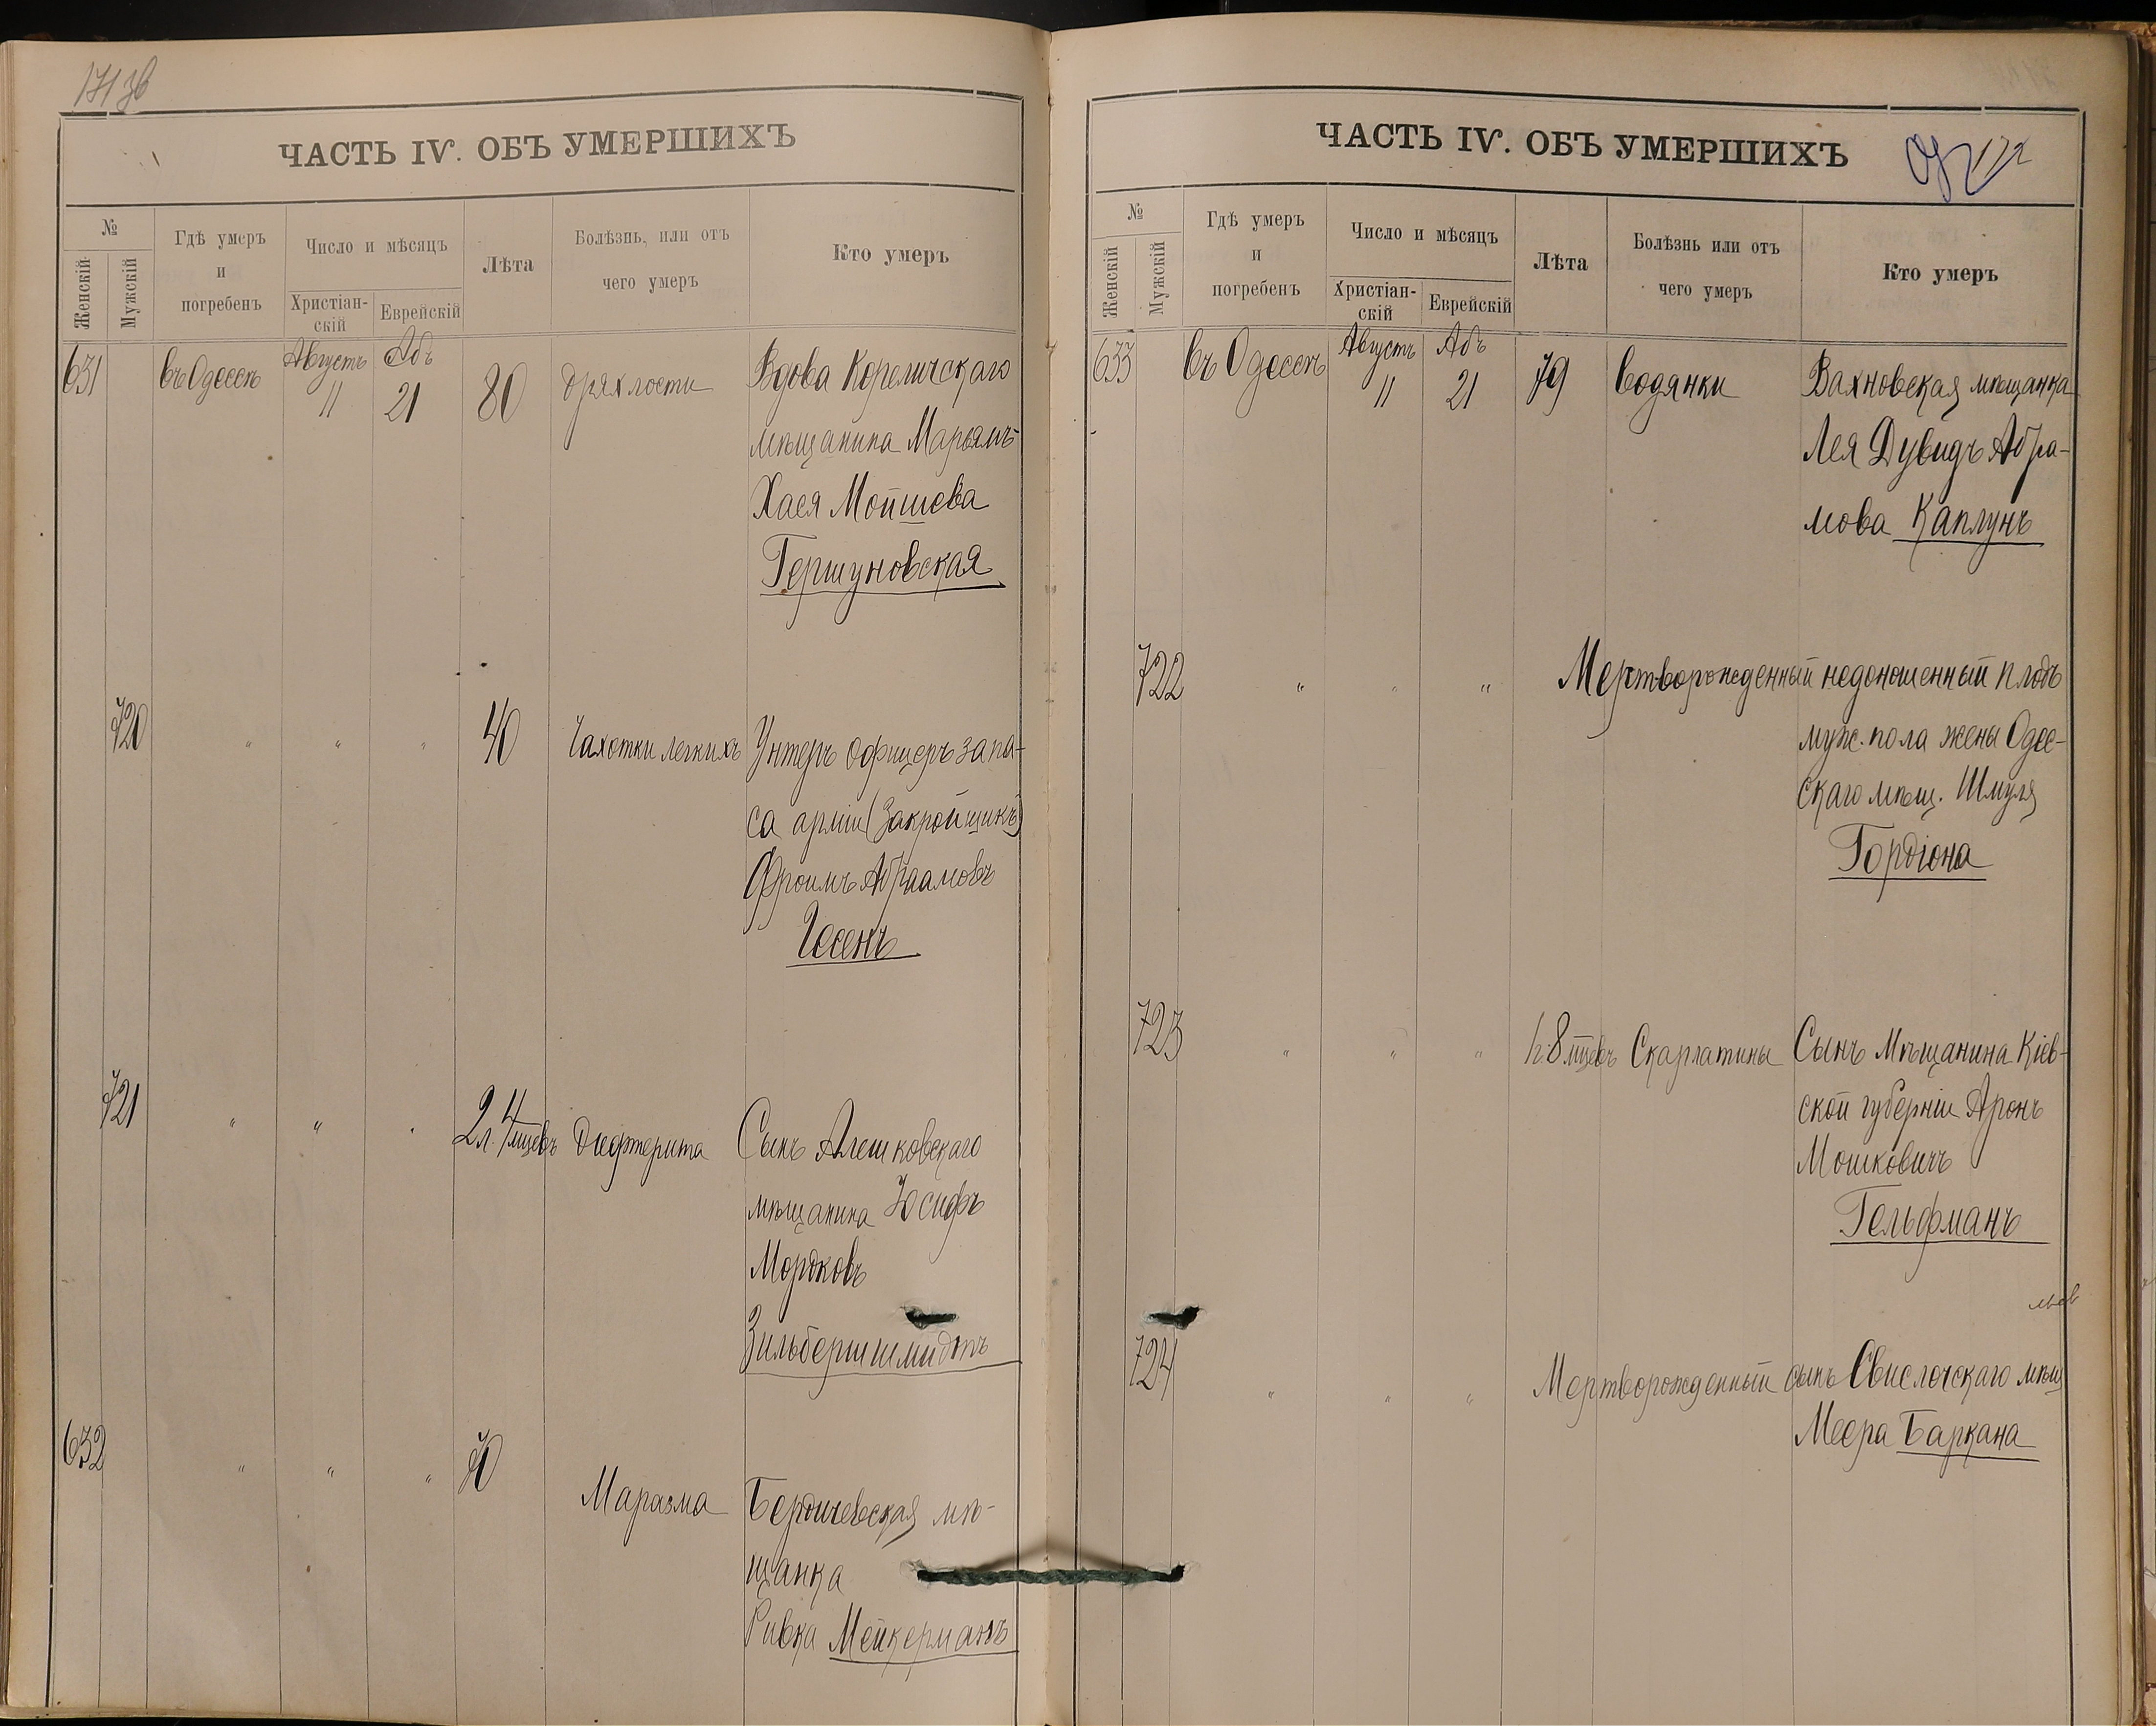 171 зв
ЧАСТЬ IV. ОБЪ УМЕРШИХЪ
№
Женскій
Мужскій
Гдѣ умеръ
и
погребенъ
Число и мѣсяцъ
Христіан-
скій
Еврейскій
Лѣта
Болѣзнь, или отъ
чего умеръ
Кто умеръ
631 въ Одессѣ Августъ 11 Абъ 21 80 дряхлости Вдова Кореличскаго
мѣщанина Марьямъ-
Хася Мойшева
Гершуновская
720 " " " 40 Чахотки легкихъ Унтеръ офицеръ запа-
са арміи (Закройщикъ)
Фроимъ Абраамовъ
Чесенъ
721 " " " 2 л. 4 мцевъ Дифтерита Сынъ Алешковскаго
мѣщанина Іосифъ
Мордковъ
Зильбершмидтъ
632 " " " 70 Маразма Бердичевская мѣ-
щанка
Ривка Мейкерманъ
ЧАСТЬ IV. ОБЪ УМЕРШИХЪ
172
№
Женскій
Мужскій
Гдѣ умеръ
и
погребенъ
Число и мѣсяцъ
Христіан-
скій
Еврейскій
Лѣта
Болѣзнь или отъ
чего умеръ
Кто умеръ
633 въ Одессѣ Августъ 11 Абъ 21 79 водянки Вахновская мѣщанка
Лея Дувидъ Абра-
мова Каплунъ
722 " " " Мертворожденный недоношенный плодъ
муж. пола жены Одес-
скаго мѣщ. Шмуля
Гордіона
723 " " " 8 мцевъ Скарлатины Сынъ Мѣщанина Кіев-
ской губерніи Аронъ
Мошковичъ
Гельфманъ
724 " " " Мертворожденный сынъ Свислочскаго мѣщ
Меера Баркана